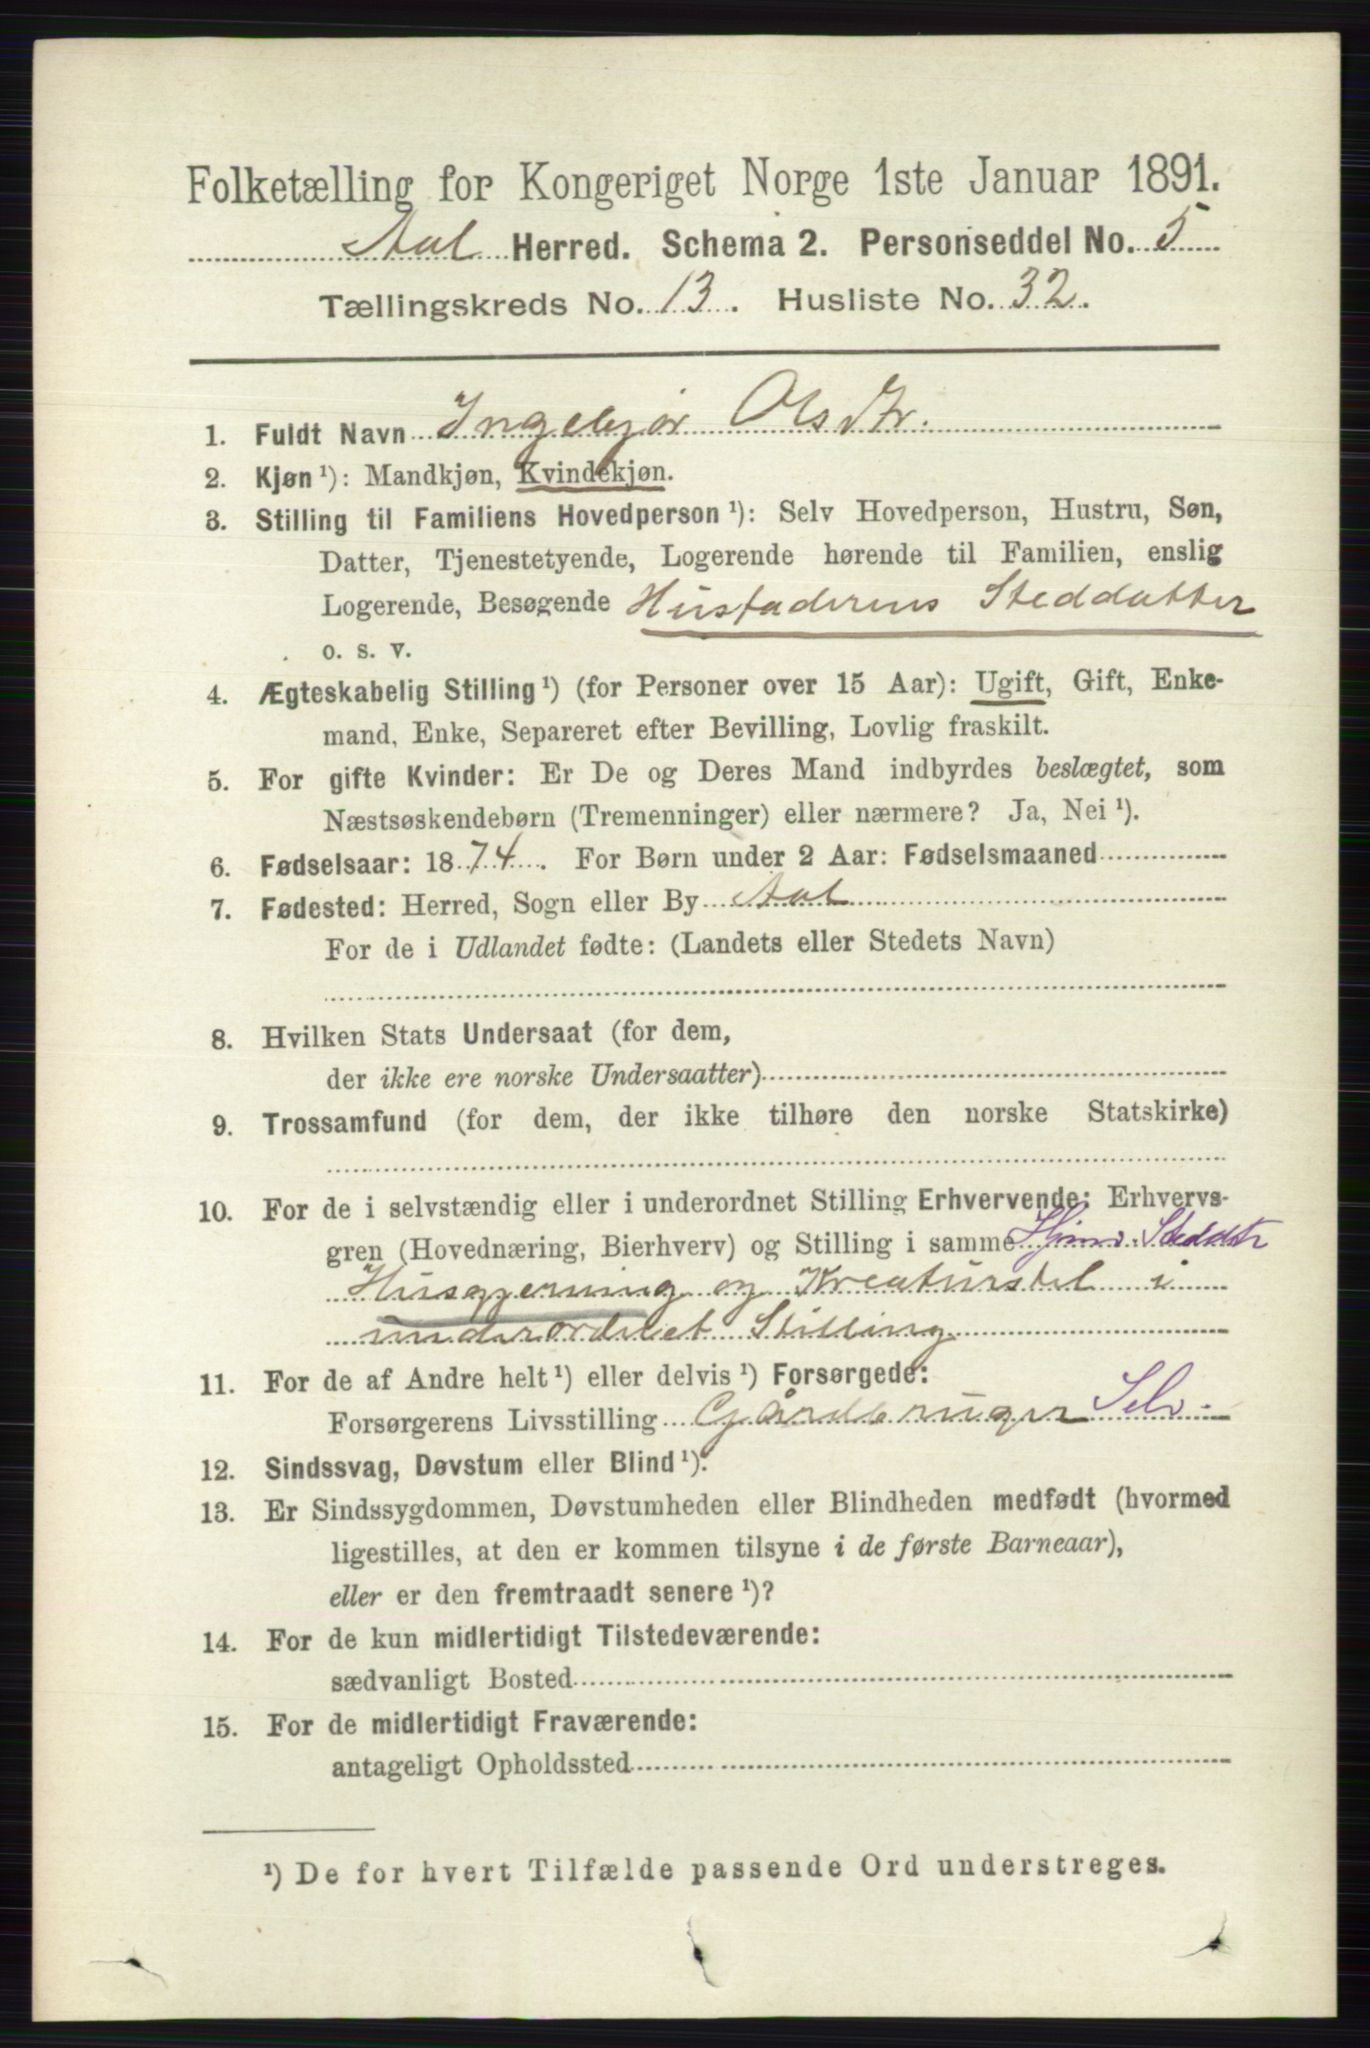 Folketælling for Kongeriget Norge 1ste Januar 1891.
Aal Herred. Schema 2. Personseddel No. 5
Tællingskreds No. 13. Husliste No. 32.
1. Fuldt Navn Ingebjør Olsdtr.
2. Kjøn ¹): Mandkjøn, Kvindekjøn.
3. Stilling til Familiens Hovedperson ¹): Selv Hovedperson, Hustru, Søn,
Datter, Tjenestetyende, Logerende hørende til Familien, enslig
Logerende, Besøgende Husfaderens Steddatter
o. s. v.
4. Ægteskabelig Stilling ¹) (for Personer over 15 Aar): Ugift, Gift, Enke-
mand, Enke, Separeret efter Bevilling, Lovlig fraskilt.
5. For gifte Kvinder: Er De og Deres Mand indbyrdes beslægtet, som
Næstsøskendebørn (Tremenninger) eller nærmere? Ja, Nei ¹).
6. Fødselsaar: 1874. For Børn under 2 Aar: Fødselsmaaned
7. Fødested: Herred, Sogn eller By Aal
For de i Udlandet fødte: (Landets eller Stedets Navn)
8. Hvilken Stats Undersaat (for dem,
der ikke ere norske Undersaatter)
9. Trossamfund (for dem, der ikke tilhøre den norske Statskirke)
10. For de i selvstændig eller i underordnet Stilling Erhvervende: Erhvervs-
gren (Hovednæring, Bierhverv) og Stilling i samme Hjmv. Steddtr
Husgjerning og Kreaturstel i
underordnet Stilling
11. For de af Andre helt ¹) eller delvis ¹) Forsørgede:
Forsørgerens Livsstilling Gårdbruger Selv.
12. Sindssvag, Døvstum eller Blind ¹).
13. Er Sindssygdommen, Døvstumheden eller Blindheden medfødt (hvormed
ligestilles, at den er kommen tilsyne i de første Barneaar),
eller er den fremtraadt senere ¹)?
14. For de kun midlertidigt Tilstedeværende:
sædvanligt Bosted
15. For de midlertidigt Fraværende:
antageligt Opholdssted
¹) De for hvert Tilfælde passende Ord understreges.